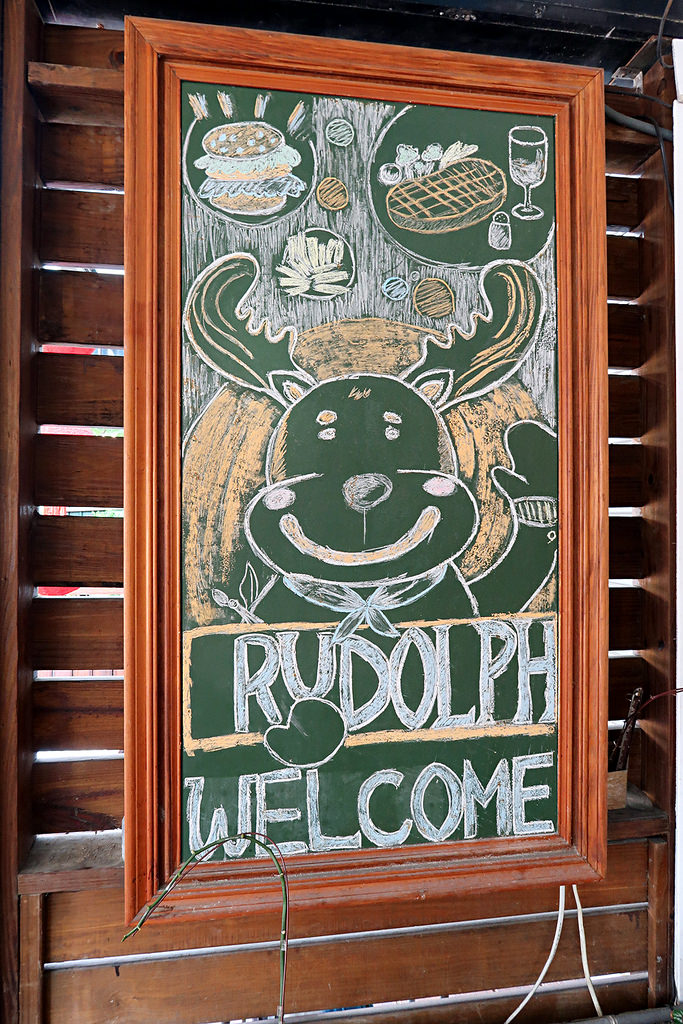 RUDOLPH
WELCOME